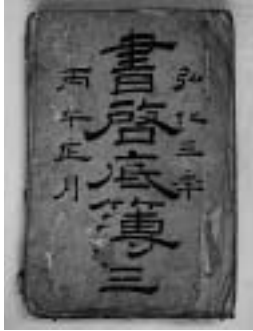 弘化三年
書啓底簿三
丙午正月